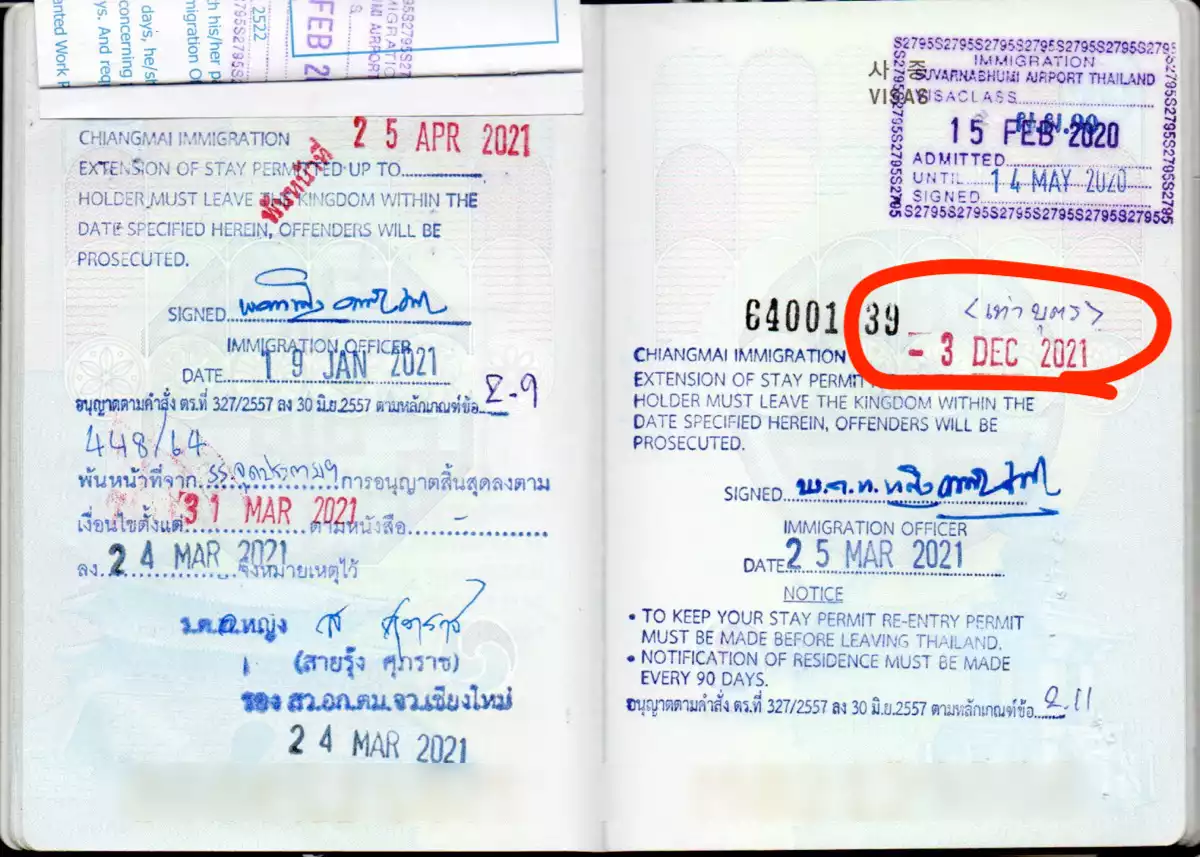 2522
FEB 2
MI AIRPORT
th his/her pa
migration Of
days, he/sh
concerning
ys. And requ
anted Work P
CHIANGMAI IMMIGRATION
25 APR 2021
EXTENSION OF STAY PERMITTED UP TO
พ้นหน้าที่
HOLDER MUST LEAVE THE KINGDOM WITHIN THE
DATE SPECIFIED HEREIN, OFFENDERS WILL BE
PROSECUTED.
SIGNED
IMMIGRATION OFFICER
DATE 19 JAN 2021
อนุญาตตามคำสั่ง ตร.ที่ 327/2557 ลง 30 มิ.ย.2557 ตามหลักเกณฑ์ข้อ 2.9
448/64
พ้นหน้าที่จาก การอนุญาตสิ้นสุดลงตาม
เงื่อนไขตั้งแต่ 31 MAR 2021 ตามหนังสือ
ลง 24 MAR 2021 จึงหมายเหตุไว้
ร.ต.อ.หญิง
(สายรุ้ง ศุภราช)
รอง สว.อก.ตม.จว.เชียงใหม่
24 MAR 2021
사증
VISAS
S2795S2795S2795S2795S2795S2795S2795S2795
IMMIGRATION
SUVARNABHUMI AIRPORT THAILAND
VISACLASS
15 FEB 2020
ADMITTED
UNTIL 14 MAY 2020
SIGNED
S2795S2795S2795S2795S2795S2795S2795S2795
64001 39
<เท่าบุตร>
- 3 DEC 2021
CHIANGMAI IMMIGRATION
EXTENSION OF STAY PERMIT
HOLDER MUST LEAVE THE KINGDOM WITHIN THE
DATE SPECIFIED HEREIN, OFFENDERS WILL BE
PROSECUTED.
SIGNED
IMMIGRATION OFFICER
DATE 25 MAR 2021
NOTICE
• TO KEEP YOUR STAY PERMIT RE-ENTRY PERMIT
MUST BE MADE BEFORE LEAVING THAILAND.
• NOTIFICATION OF RESIDENCE MUST BE MADE
EVERY 90 DAYS.
อนุญาตตามคำสั่ง ตร.ที่ 327/2557 ลง 30 มิ.ย.2557 ตามหลักเกณฑ์ข้อ 2.11